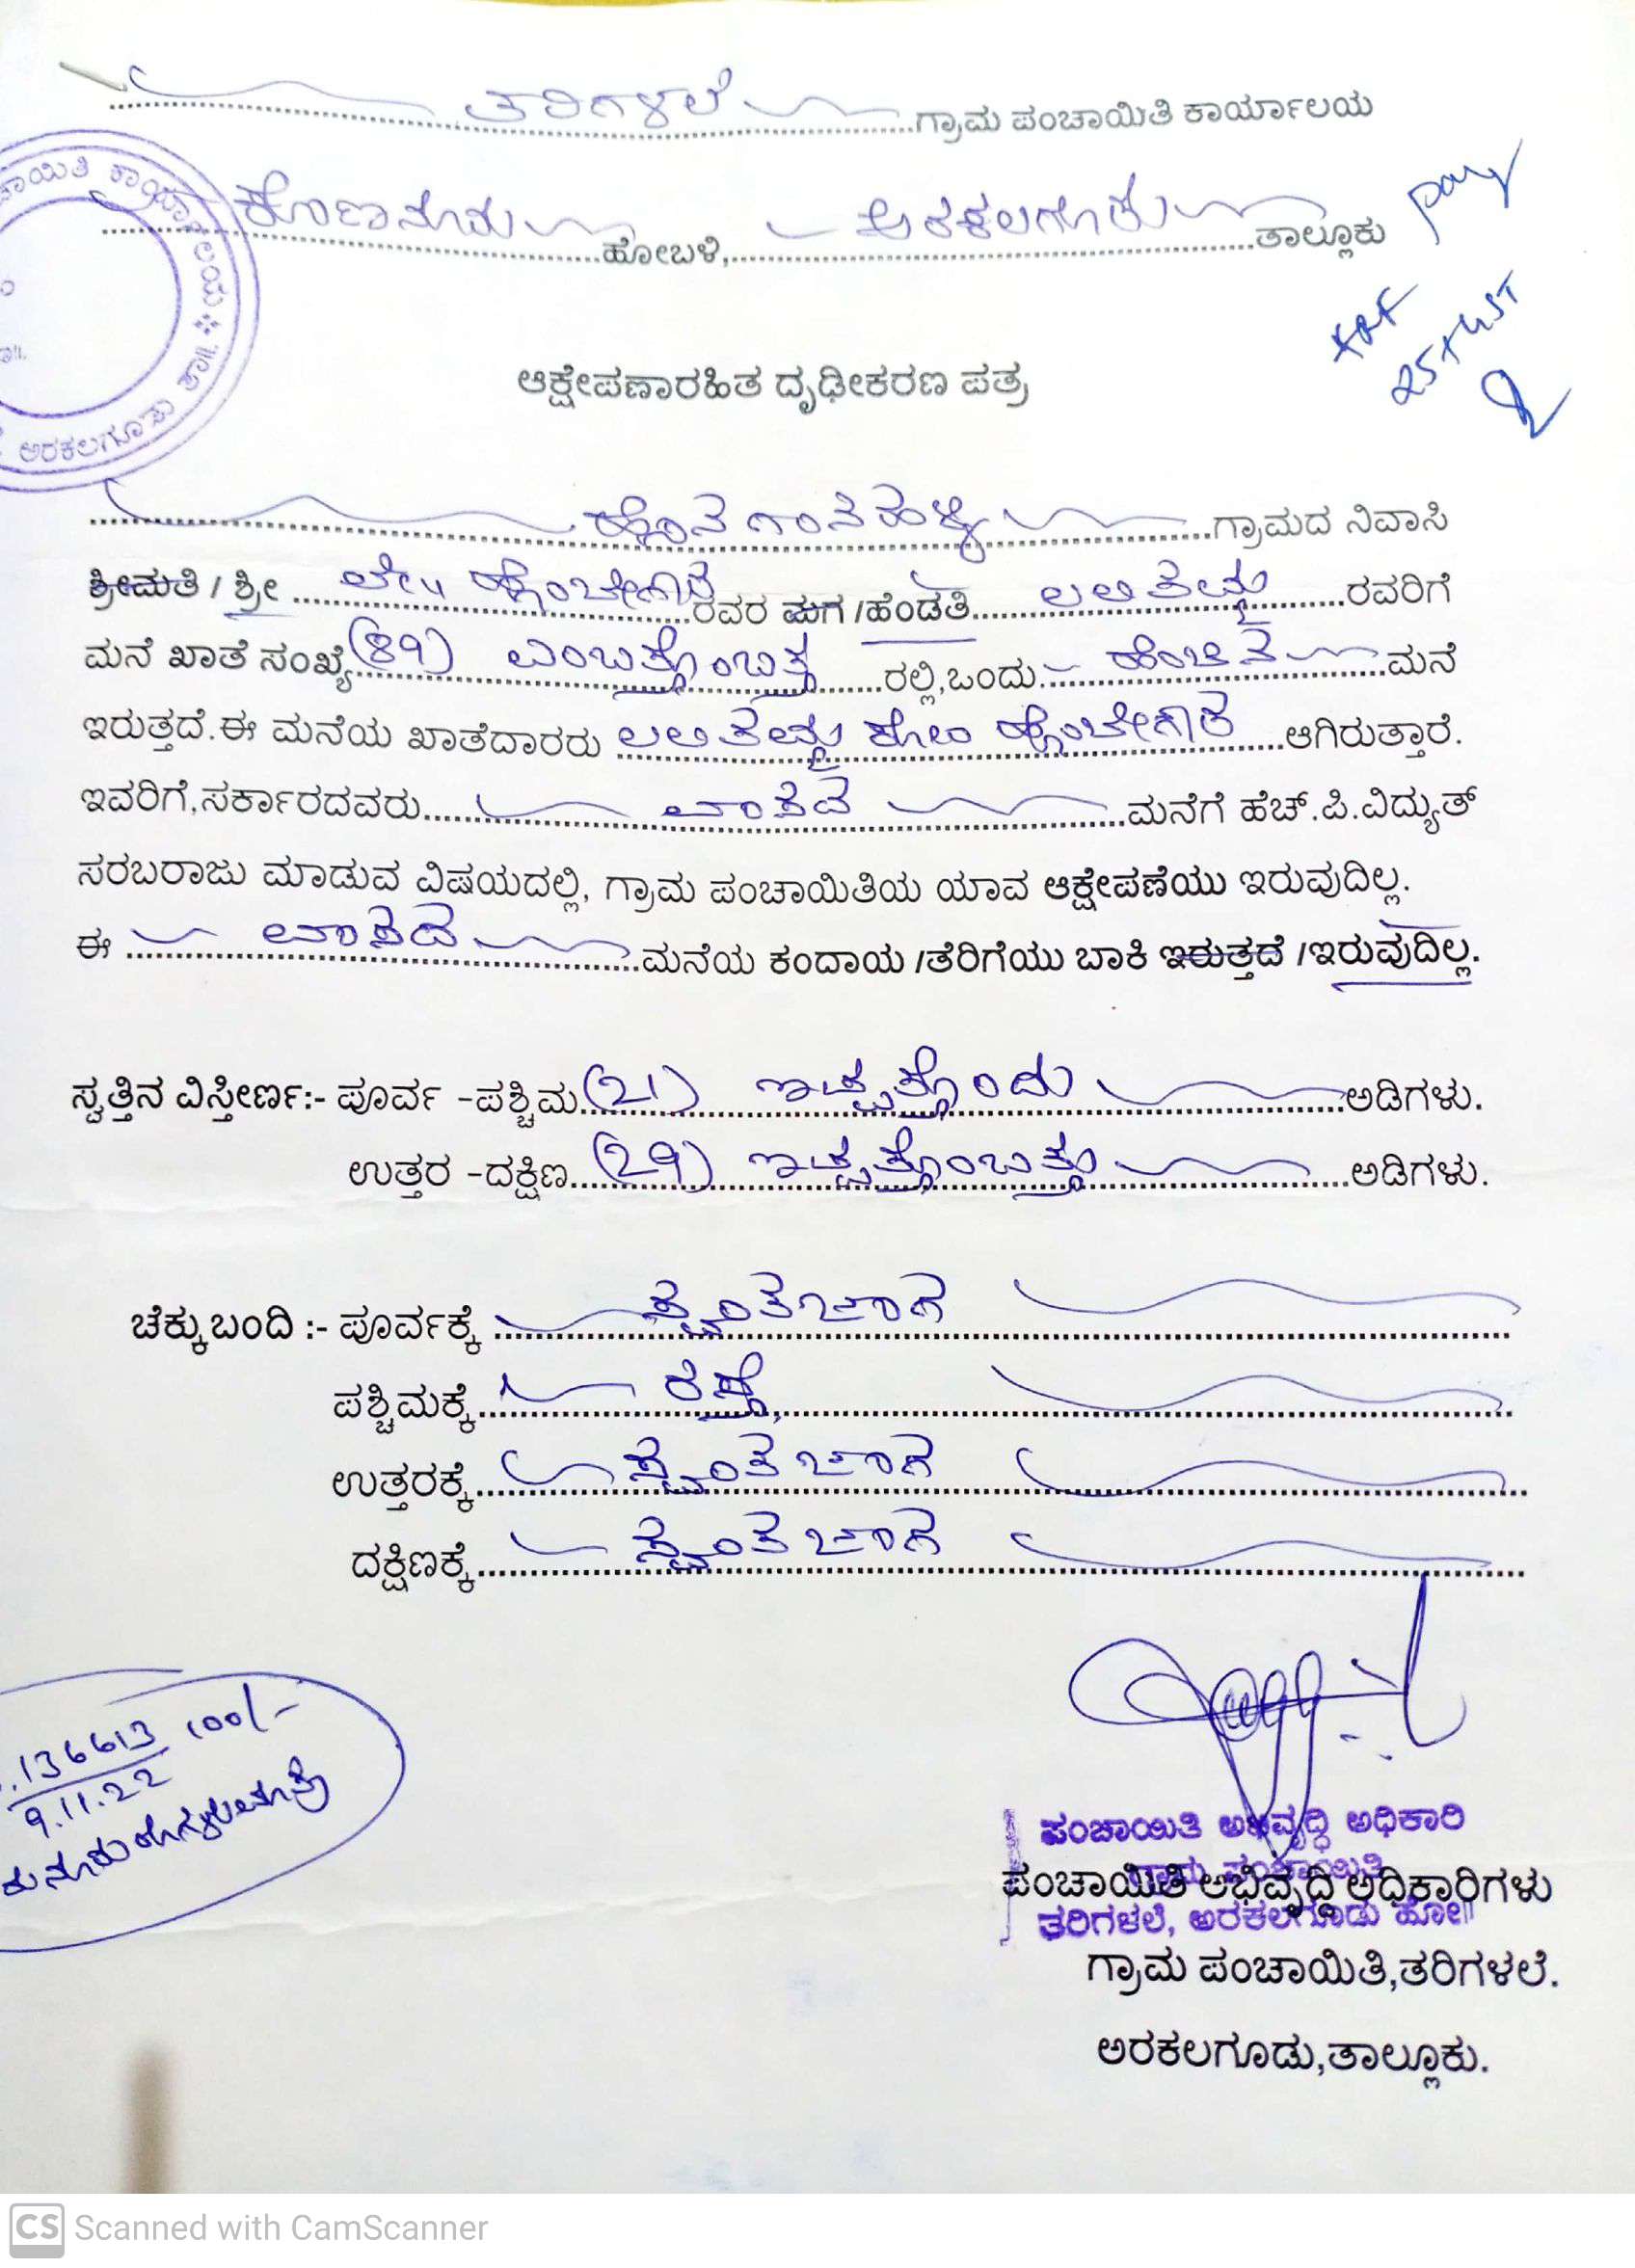 ತರಿಗಳಲೆ ಗ್ರಾಮ ಪಂಚಾಯಿತಿ ಕಾರ್ಯಾಲಯ
ಕೊಣನೂರು ಹೋಬಳಿ, ಅರಕಲಗೂಡು ತಾಲ್ಲೂಕು
pay
25+GST
ಅರಕಲಗೂಡು ತಾ॥
ಆಕ್ಷೇಪಣಾರಹಿತ ದೃಢೀಕರಣ ಪತ್ರ
ಗ್ರಾಮದ ನಿವಾಸಿ
ಶ್ರೀಮತಿ / ಶ್ರೀ ಲೇ॥ ರವರ ಮಗ /ಹೆಂಡತಿ ಲಲಿತಮ್ಮ ರವರಿಗೆ
ಮನೆ ಖಾತೆ ಸಂಖ್ಯೆ (89) ಎಂಬತ್ತೊಂಬತ್ತ ರಲ್ಲಿ,ಒಂದು ಹೆಂಚಿನ ಮನೆ
ಇರುತ್ತದೆ.ಈ ಮನೆಯ ಖಾತೆದಾರರು ಲಲಿತಮ್ಮ ಕೋಂ ಆಗಿರುತ್ತಾರೆ.
ಇವರಿಗೆ,ಸರ್ಕಾರದವರು ವಾಸದ ಮನೆಗೆ ಹೆಚ್.ಪಿ.ವಿದ್ಯುತ್
ಸರಬರಾಜು ಮಾಡುವ ವಿಷಯದಲ್ಲಿ, ಗ್ರಾಮ ಪಂಚಾಯಿತಿಯ ಯಾವ ಆಕ್ಷೇಪಣೆಯು ಇರುವುದಿಲ್ಲ.
ಈ ವಾಸದ ಮನೆಯ ಕಂದಾಯ /ತೆರಿಗೆಯು ಬಾಕಿ ಇರುತ್ತದೆ /ಇರುವುದಿಲ್ಲ.
ಸ್ವತ್ತಿನ ವಿಸ್ತೀರ್ಣ:- ಪೂರ್ವ -ಪಶ್ಚಿಮ (21) ಇಪ್ಪತ್ತೊಂದು ಅಡಿಗಳು.
ಉತ್ತರ -ದಕ್ಷಿಣ (29) ಇಪ್ಪತ್ತೊಂಬತ್ತು ಅಡಿಗಳು.
ಚೆಕ್ಕುಬಂದಿ :- ಪೂರ್ವಕ್ಕೆ ಸ್ವಂತ ಜಾಗ
ಪಶ್ಚಿಮಕ್ಕೆ ರಸ್ತೆ,
ಉತ್ತರಕ್ಕೆ ಸ್ವಂತ ಜಾಗ
ದಕ್ಷಿಣಕ್ಕೆ ಸ್ವಂತ ಜಾಗ
136613 100/-
9.11.22
ಪಂಚಾಯಿತಿ ಅಭಿವೃದ್ಧಿ ಅಧಿಕಾರಿ
ಗ್ರಾಮ ಪಂಚಾಯಿತಿ
ಪಂಚಾಯಿತಿ ಅಭಿವೃದ್ಧಿ ಅಧಿಕಾರಿಗಳು
ತರಿಗಳಲೆ, ಅರಕಲಗೂಡು ತಾ॥
ಗ್ರಾಮ ಪಂಚಾಯಿತಿ,ತರಿಗಳಲೆ.
ಅರಕಲಗೂಡು,ತಾಲ್ಲೂಕು.
CS Scanned with CamScanner